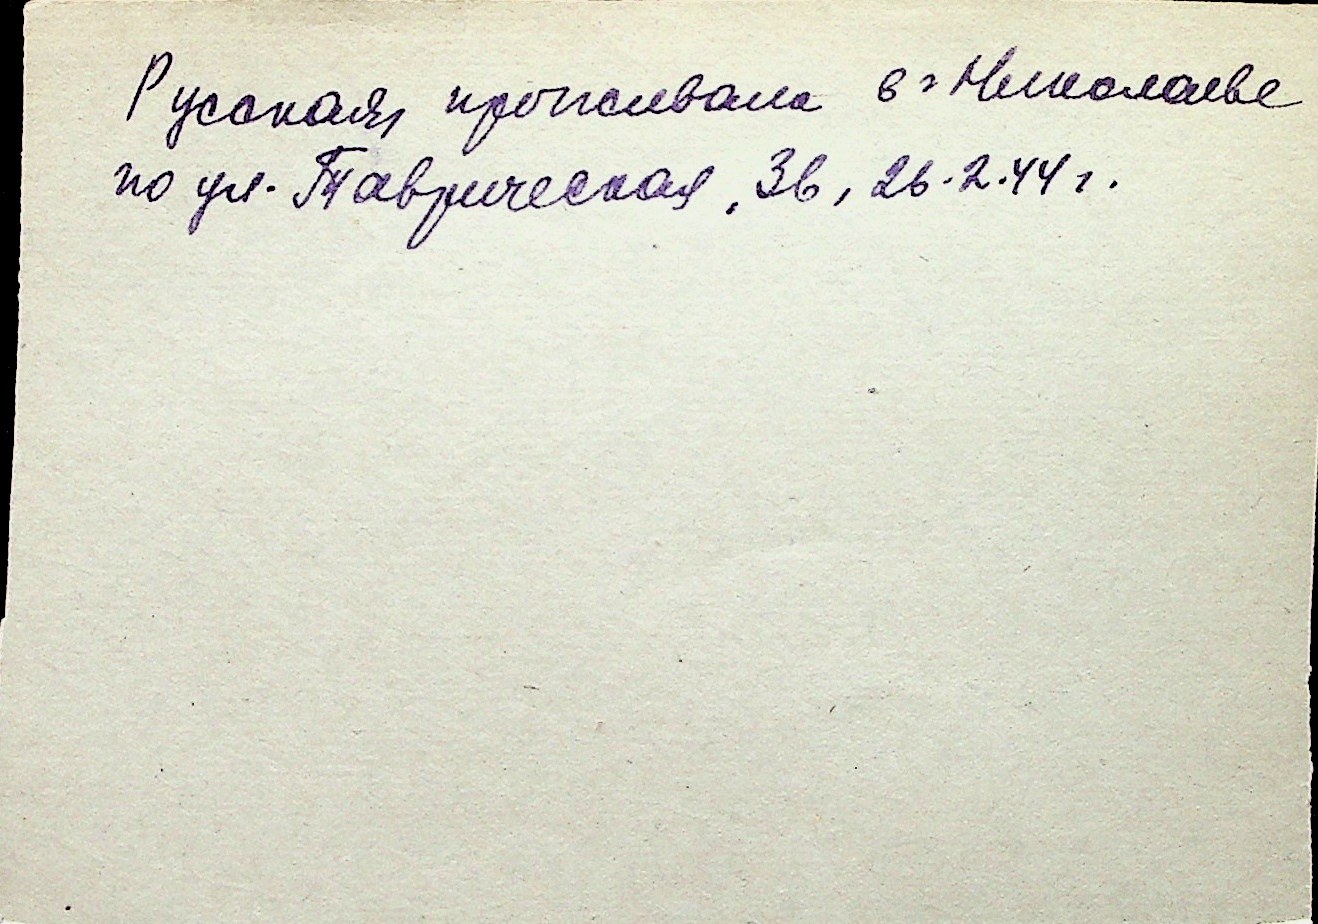 Русская, проживала в г Николаеве
по ул. Таврическая, 36, 26.2.44 г.